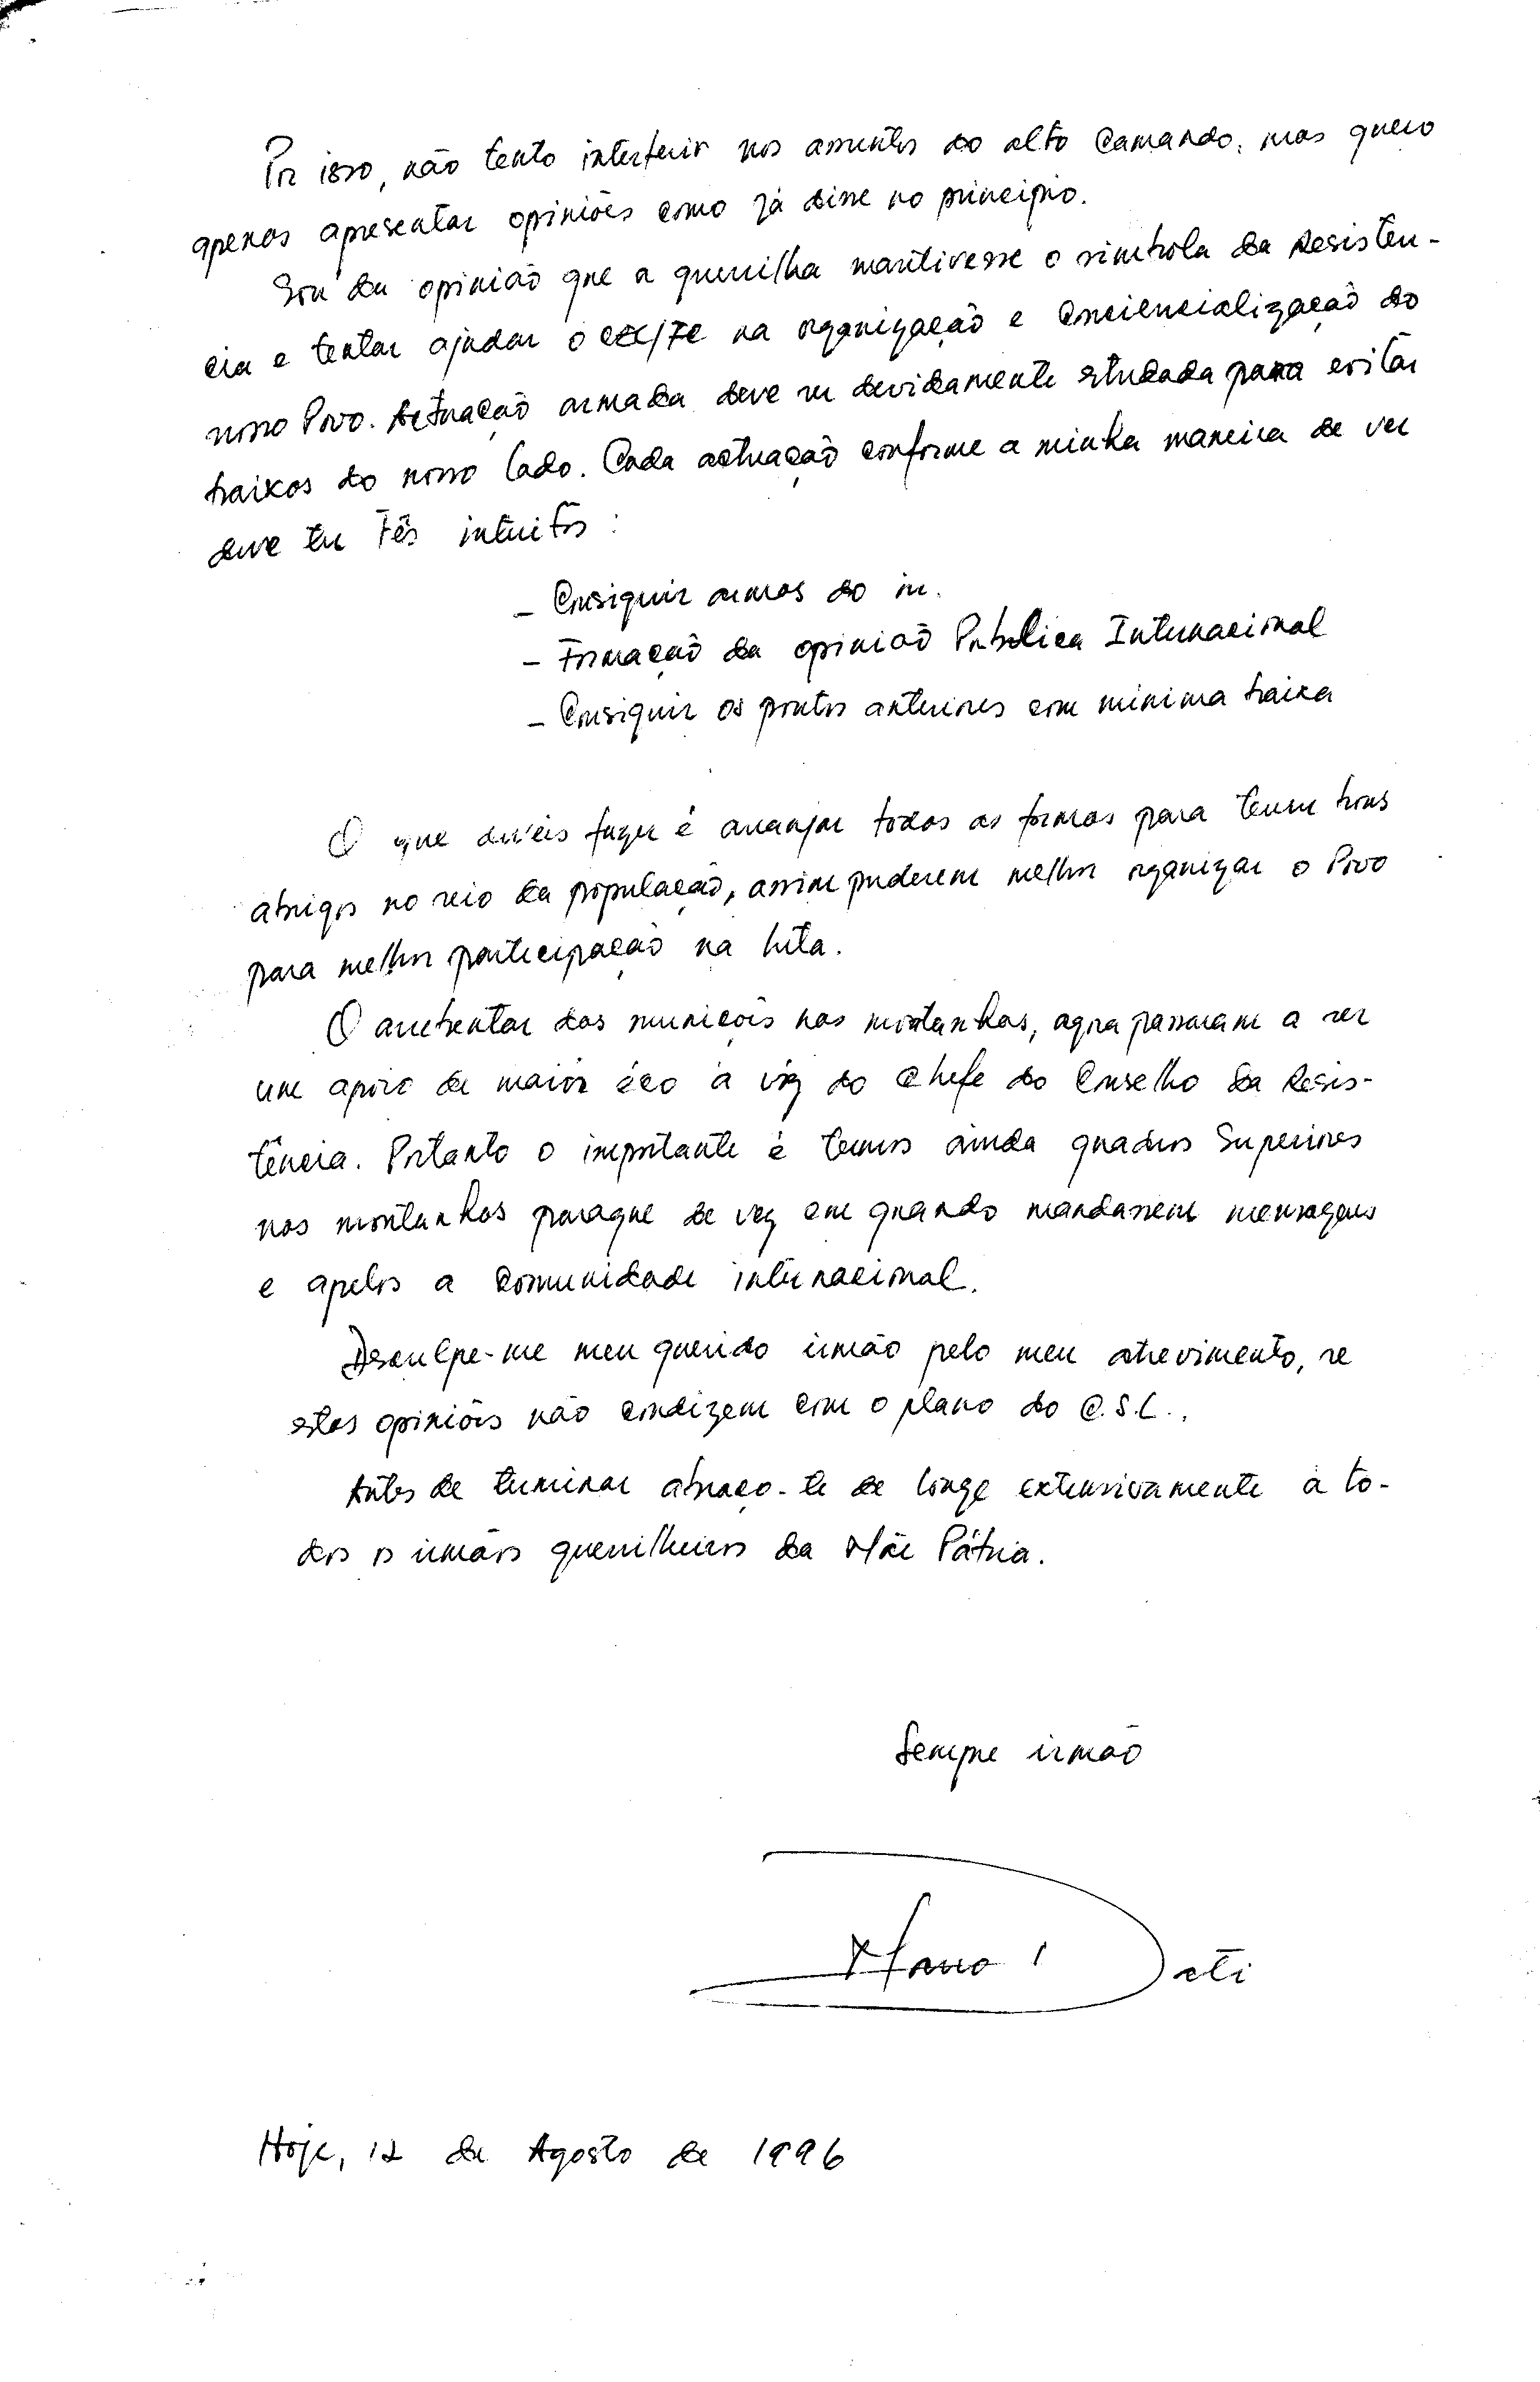 Por isso, não tento interferir nos assuntos do alto Comando, mas quero
apenas apresentar opiniões como já disse no principio.
Sou da opinião que a guerrilha mantivesse o simbolo da Resisten-
cia e tentar ajudar o CEC/FC na organização e Consciencialização do
nosso Povo. Actuação armada deve ser devidamente estudada para evitar
baixas do nosso lado. Cada actuação conforme a minha maneira de ver
deve ter três intuitos :
- Conseguir armas do in.
- Formação da opinião Publica Internacional
- Conseguir os pontos anteriores com minima baixa
O que deveis fazer é arranjar todas as formas para terem bons
abrigos no seio da população, assim puderem melhor organizar o Povo
para melhor participação na luta.
O arrebentar das munições nas montanhas, agora passaram a ser
um apoio de maior éco à voz do Chefe do Conselho da Resis-
tência. Portanto o importante é termos ainda quadros Superiores
nas montanhas paraque de vez em quando mandassem mensagens
e apelos a Comunidade internacional.
Desculpe-me meu querido irmão pelo meu atrevimento, se
estas opiniões não condizem com o plano do C.S.L..
Antes de terminar abraço-te de longe extensivamente a to-
dos os irmãos guerrilheiros da Mãe Pátria.
Sempre irmão
Dati
Hoje, 12 de Agosto de 1996